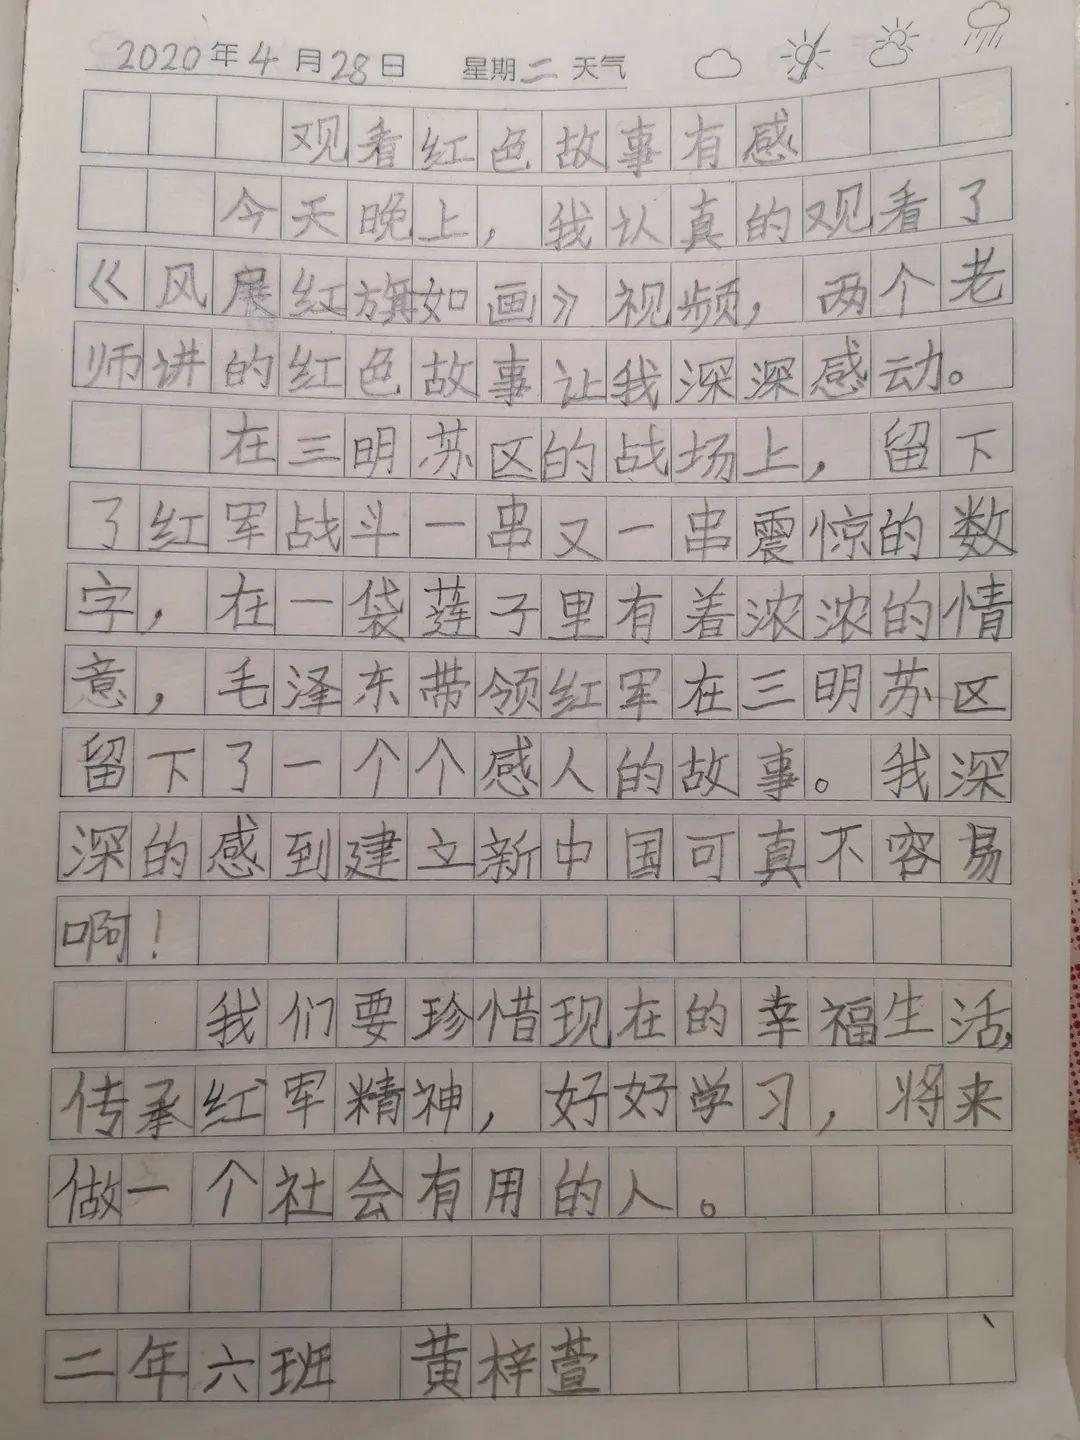 2020年4月28日 星期二 天气
观看红色故事有感
今天晚上，我认真的观看了
《风展红旗如画》视频，两个老
师讲的红色故事让我深深感动。
在三明苏区的战场上，留下
了红军战斗一串又一串震惊的数
字，在一袋莲子里有着浓浓的情
意，毛泽东带领红军在三明苏区
留下了一个个感人的故事。我深
深的感到建立新中国可真不容易
啊！
我们要珍惜现在的幸福生活，
传承红军精神，好好学习，将来
做一个社会有用的人。
二年六班 黄梓萱